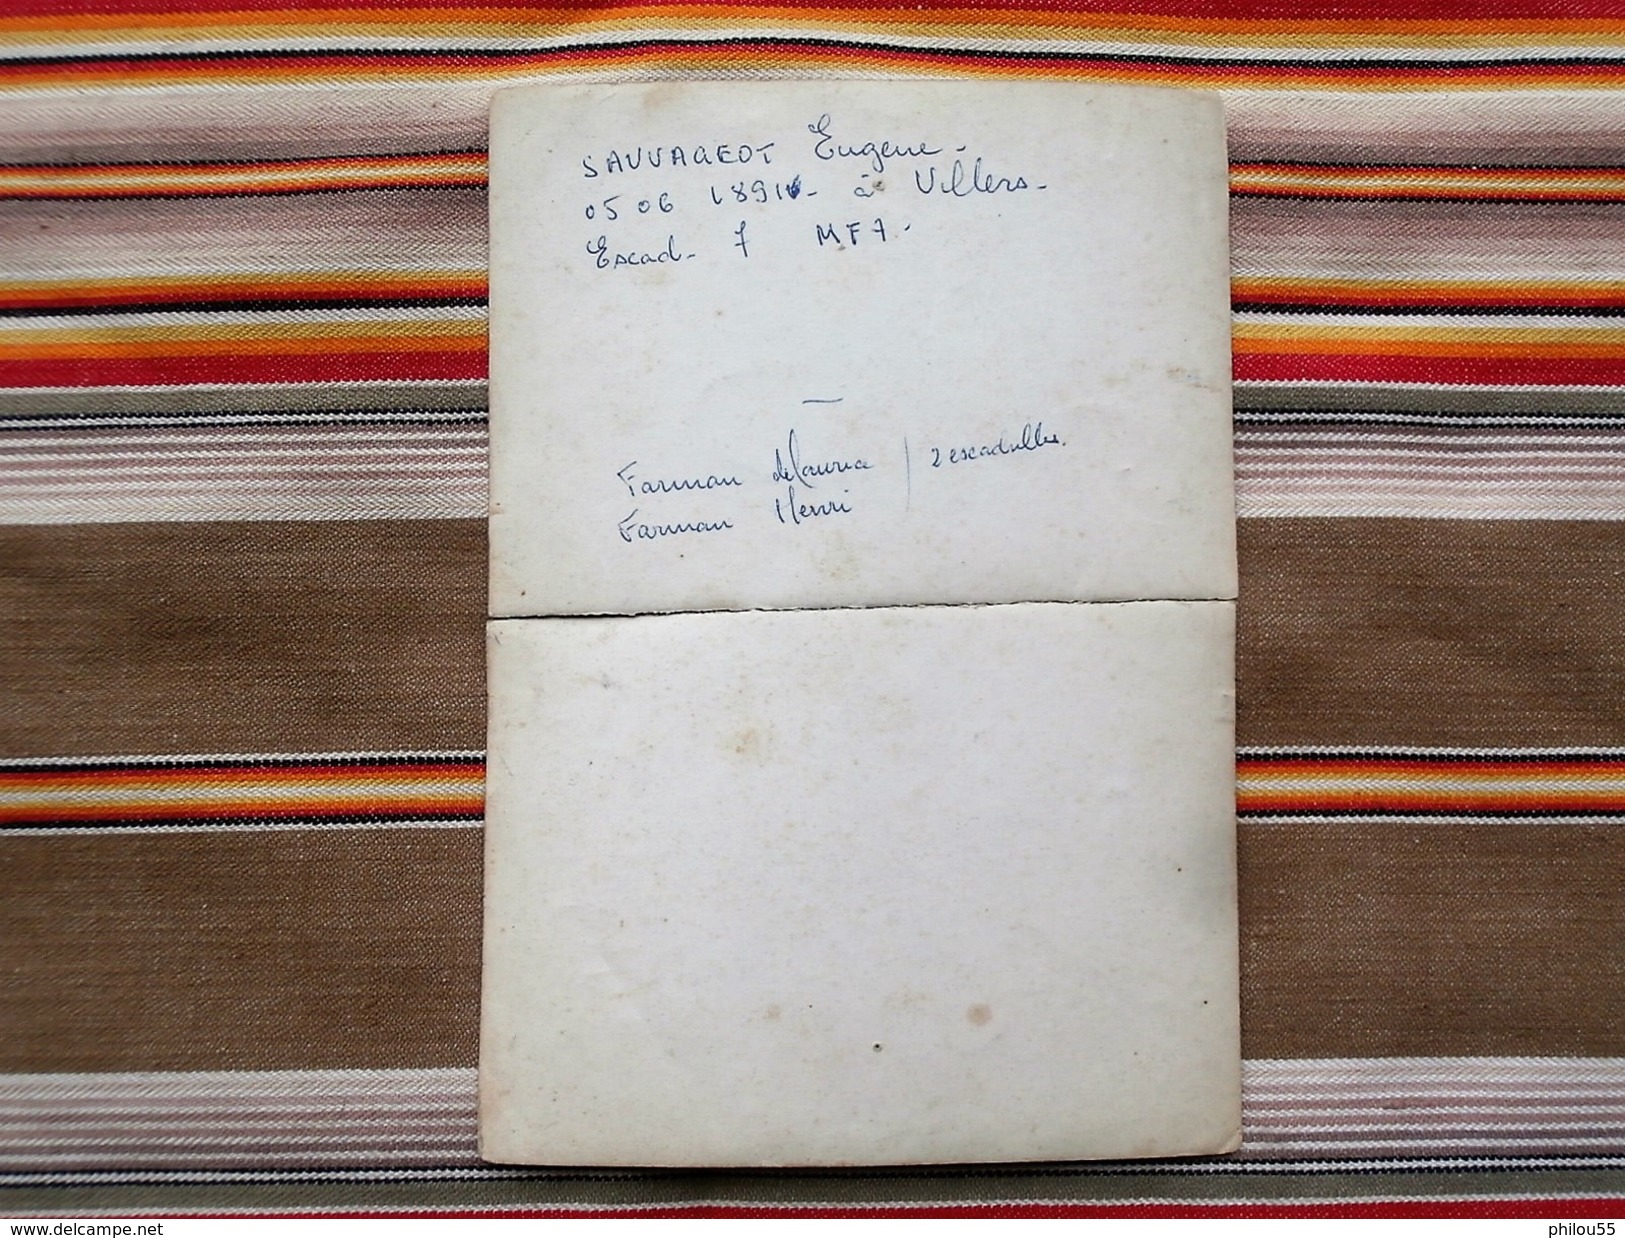 SAUVAGEOT Eugene -
05 06 1891 - à Villers -
Escad - 7 MF7 -
—
Farman Maurice / 2 escadrilles.
Farman Henri
www.delcampe.net
philou55